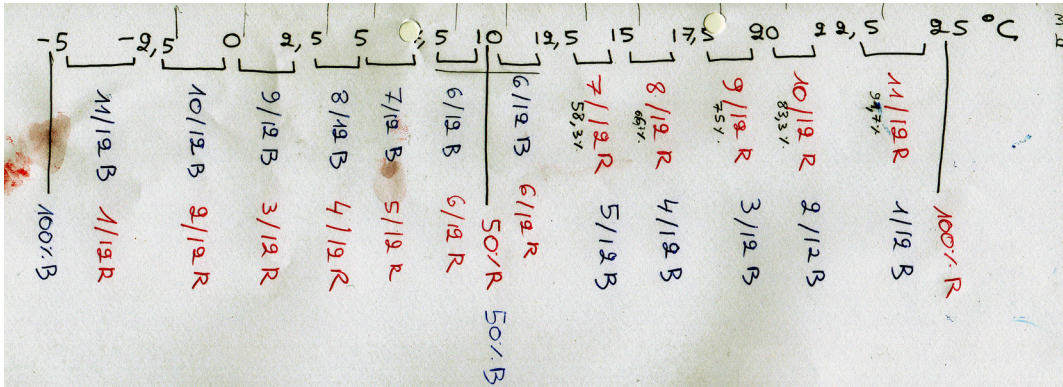 -5 -2,5 0 2,5 5 7,5 10 12,5 15 17,5 20 22,5 25 °C
100% B
11/12 B 1/12 R
10/12 B 2/12 R
9/12 B 3/12 R
8/12 B 4/12 R
7/12 B 5/12 R
6/12 B 6/12 R
50% R 50% B
6/12 B 6/12 R
7/12 R 5/12 B
58,3%
8/12 R 4/12 B
9/12 R 3/12 B
75%
10/12 R 2/12 B
83,3%
11/12 R 1/12 B
91,7%
100% R